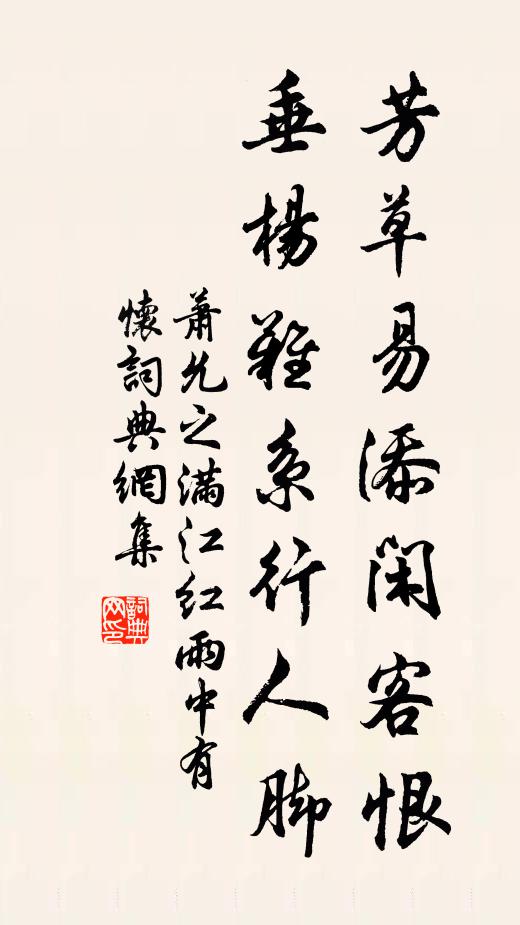 芳草易添闲客恨
垂楊難系行人脚
萧允之满江红雨中有
懷詞典網集
詞典网印